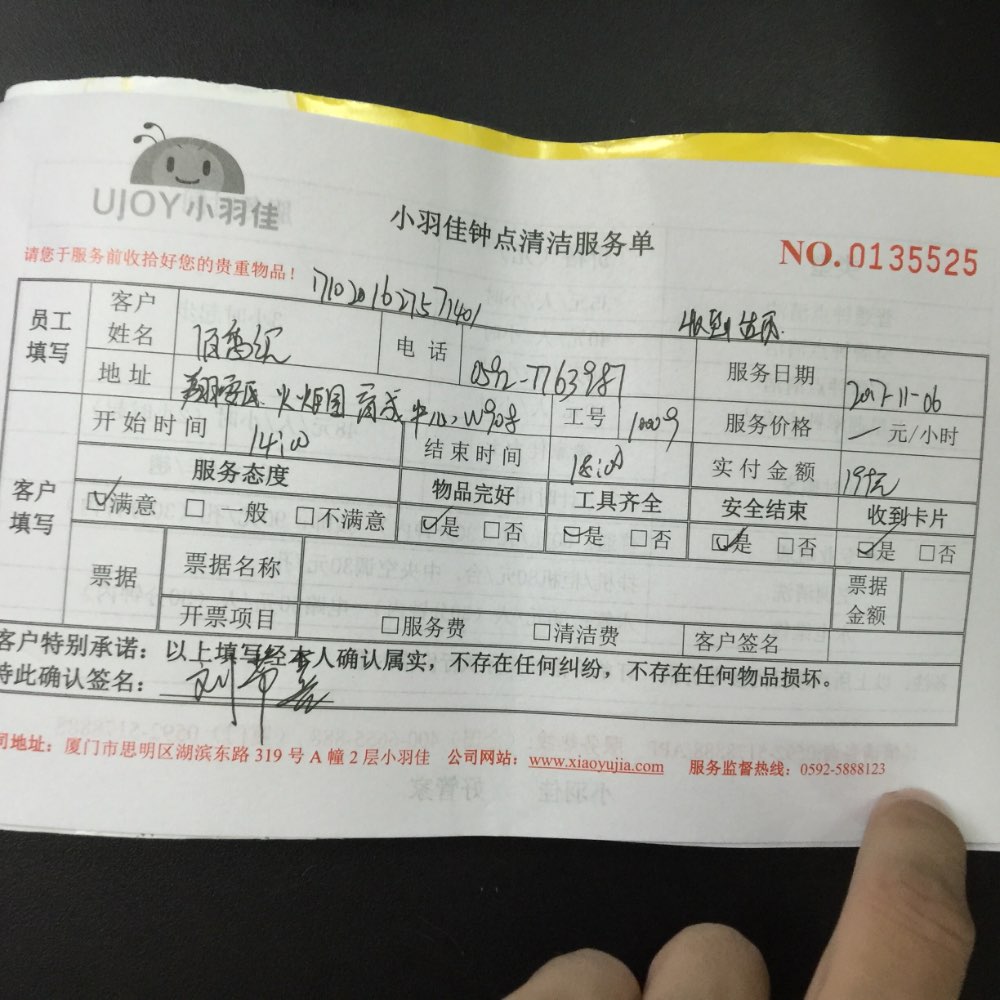 UJOY小羽佳
小羽佳钟点清洁服务单
NO.0135525
请您于服务前收拾好您的贵重物品！
员工填写 客户姓名 电话 0592-7763987 服务日期 2017-11-06
地址 服务价格 元/小时
工号
开始时间 14:00 结束时间 18:00 实付金额
客户填写 服务态度 物品完好 工具齐全 安全结束 收到卡片
☑满意 □一般 □不满意 ☑是 □否 ☑是 □否 ☑是 □否 ☑是 □否
票据 票据名称 票据金额
开票项目 □服务费 □清洁费 客户签名
客户特别承诺：以上填写经本人确认属实，不存在任何纠纷，不存在任何物品损坏。
特此确认签名：
司地址：厦门市思明区湖滨东路 319 号 A 幢 2 层小羽佳 公司网站：www.xiaoyujia.com 服务监督热线：0592-5888123